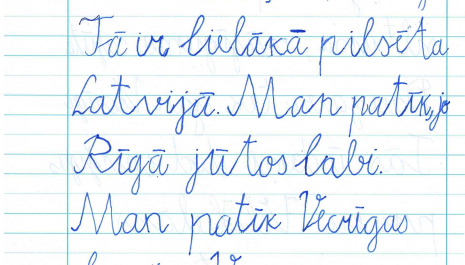 Tā ir lielākā pilsēta
Latvijā. Man patīk, jo
Rīgā jūtos labi.
Man patīk Vecrīgas